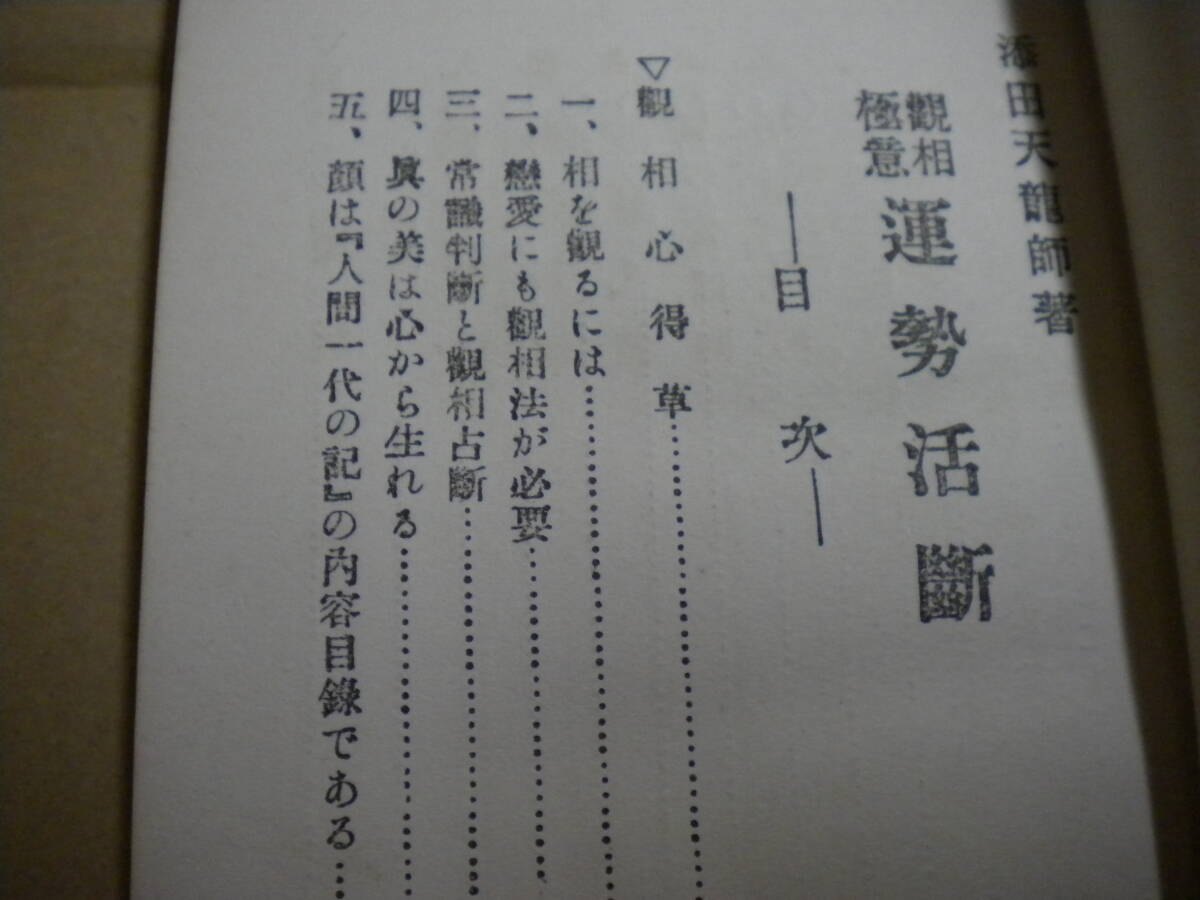 添田天龍師著
觀相極意 運勢活斷
―目次―
▽觀相心得草……………………
一、相を觀るには……………………
二、戀愛にも觀相法が必要……………………
三、常識判斷と觀相占斷……………………
四、眞の美は心から生れる……………………
五、顏は『人間一代の記』の內容目錄である…